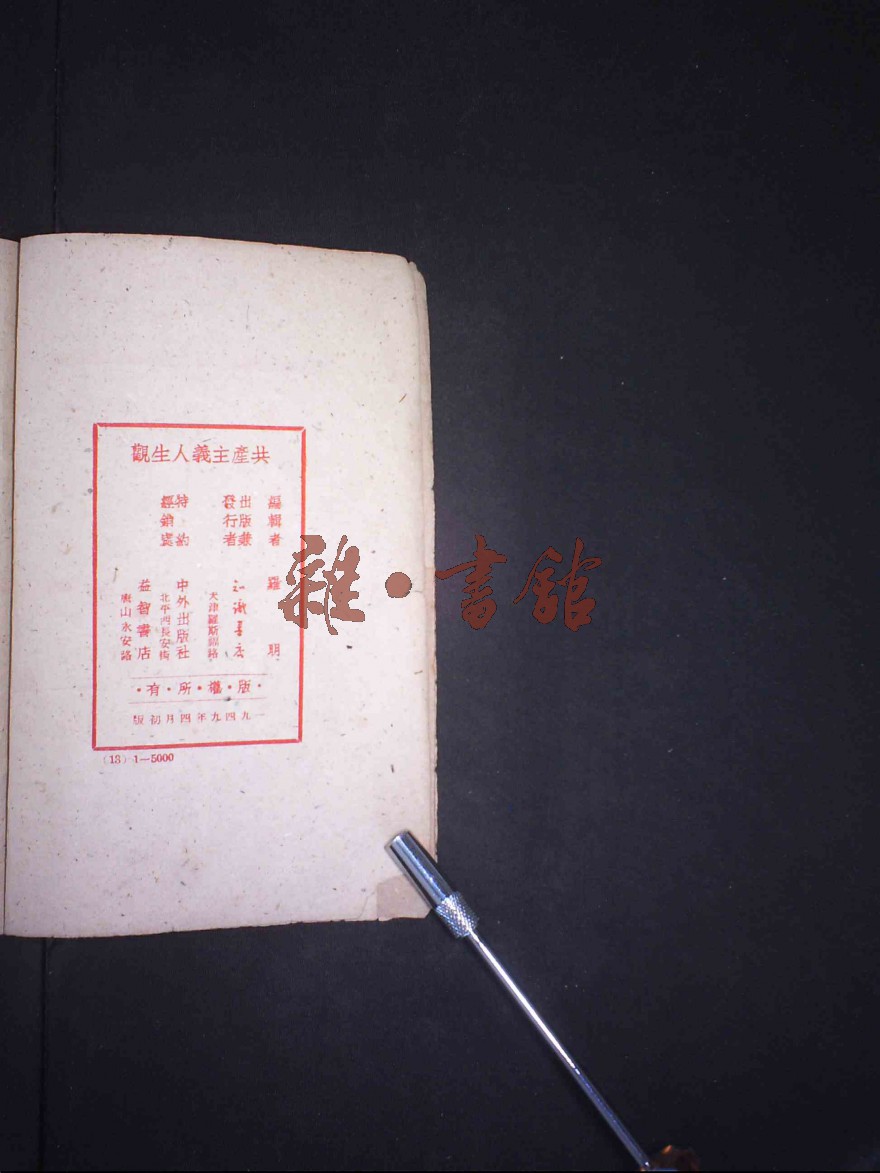 共產主義人生觀
編輯者 羅明
出版兼發行者
天津羅斯福路
特約經銷處
中外出版社
北平西長安街
益智書店
唐山永安路
·版·權·所·有·
九四九年四月初版
(13) 1—5000
雜·書館